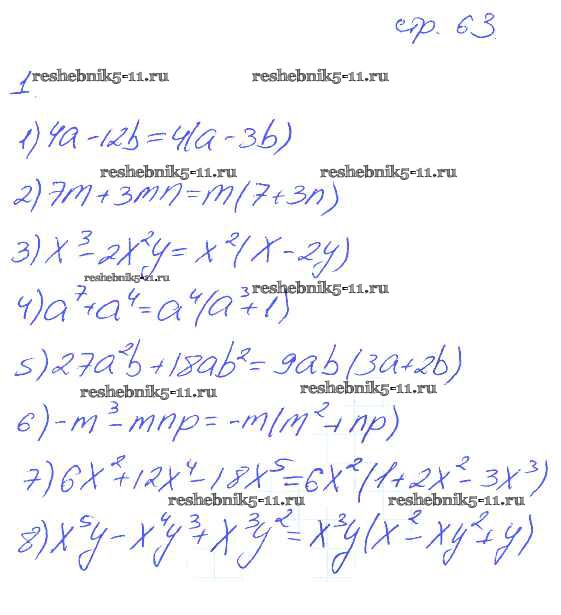 стр. 63
reshebnik5-11.ru reshebnik5-11.ru
1.
1) 4a - 12b = 4(a - 3b)
reshebnik5-11.ru reshebnik5-11.ru
2) 7m + 3mn = m(7 + 3n)
3) x³ - 2x²y = x²(x - 2y)
reshebnik5-11.ru reshebnik5-11.ru
4) a⁷ + a⁴ = a⁴(a³ + 1)
5) 27a²b + 18ab² = 9ab(3a + 2b)
reshebnik5-11.ru reshebnik5-11.ru
6) -m³ - mnp = -m(m² + np)
7) 6x² + 12x⁴ - 18x⁵ = 6x²(1 + 2x² - 3x³)
reshebnik5-11.ru reshebnik5-11.ru
8) x⁵y - x⁴y³ + x³y² = x³y(x² - xy² + y)